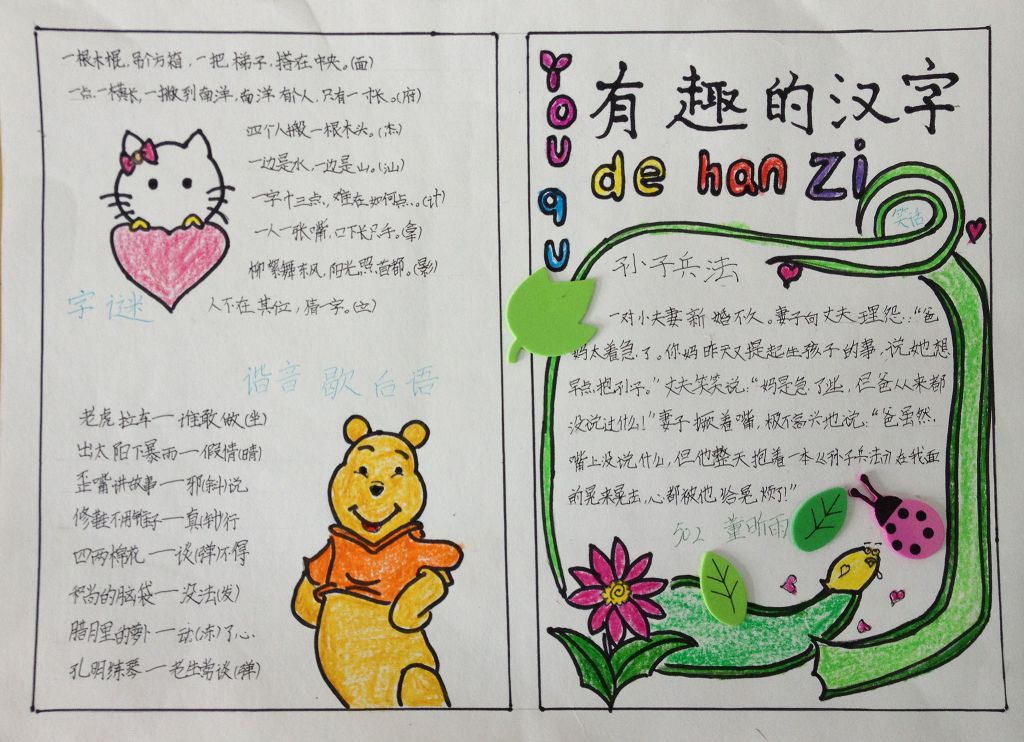 一根木棍,吊个方箱,一把梯子,搭在中央。(面)
一点一横长,一撇到南洋,南洋有个人,只有一寸长。(府)
四个人搬一根木头。(杰)
一边是水,一边是山。(汕)
一字十三点,难在如何点。(汁)
一人一张嘴,口下长只手。(拿)
柳絮舞东风,阳光照首都。(影)
字谜
人不在其位,猜一字。(立)
谐音歇后语
老虎拉车——谁敢做(坐)
出太阳下暴雨——假情(晴)
歪嘴讲故事——邪(斜)说
修鞋不用锥子——真(针)行
四两棉花——谈(弹)不得
和尚的脑袋——没法(发)
腊月里的萝卜——动(冻)了心
孔明练琴——老生常谈(弹)
有趣的汉字
You qu
de han Zi
笑话
孙子兵法
一对小夫妻新婚不久。妻子向丈夫埋怨:“爸
妈太着急了。你妈昨天又提起生孩子的事,说她想
早点抱孙子。”丈夫笑笑说:“妈是急了些,但爸从来都
没说过什么!”妻子撅着嘴,极不高兴地说:“爸虽然
嘴上没说什么,但他整天抱着一本《孙子兵法》在我面
前晃来晃去,心都被他给晃烦了!”
502 董昕雨